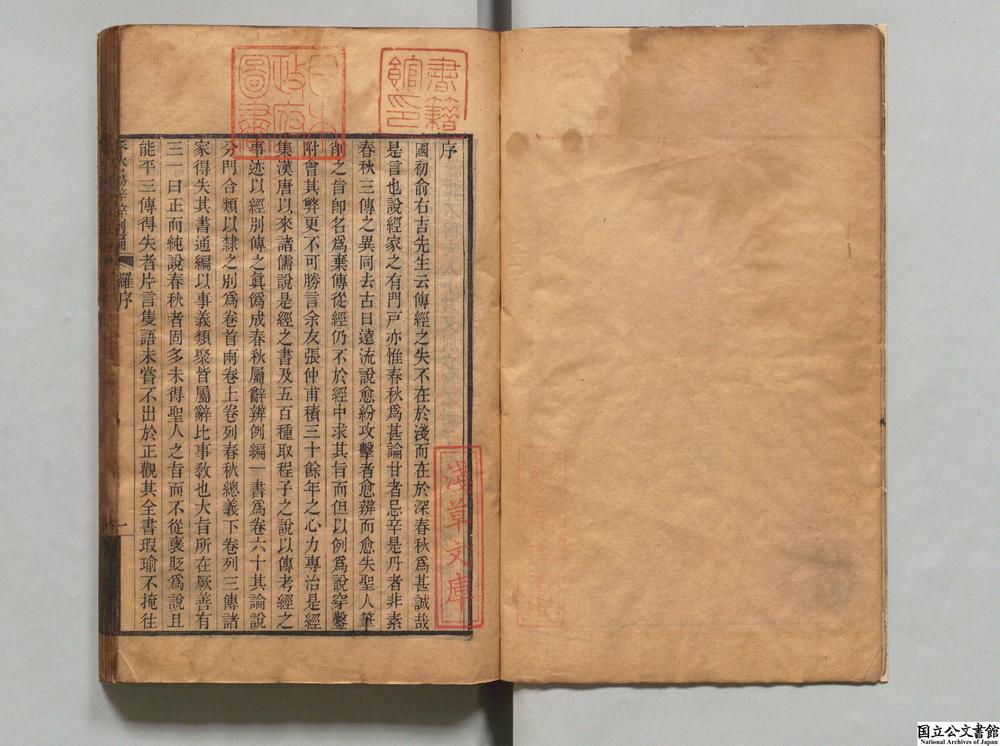 序
國初俞右吉先生云傳經之失不在於淺而在於深春秋爲甚誠哉
是言也說經家之有門戸亦惟春秋爲甚論甘者忌辛是丹者非素
春秋三傳之異同去古日遠流說愈紛攻擊者愈辨而愈失聖人筆
削之旨卽名爲棄傳從經仍不於經中求其旨而但以例爲說穿鑿
附會其弊更不可勝言余友張仲甫積三十餘年之心力專治是經
集漢唐以來諸儒說是經之書及五百種取程子之說以傳考經之
事迹以經別傳之眞僞成春秋屬辭辨例編一書爲卷六十其論說
分門合類以隸之別爲卷首兩卷上卷列春秋總義下卷列三傳諸
家得失其書通編以事義類聚皆屬辭比事敎也大旨所在厥善有
三一曰正而純說春秋者固多未得聖人之旨而不從襃貶爲說且
能平三傳得失者片言隻語未嘗不出於正觀其全書瑕瑜不掩往
春秋屬辭辨例編
羅序
一
書籍館印
日本政府圖書
淺草文庫
国立公文書館
National Archives of Japan